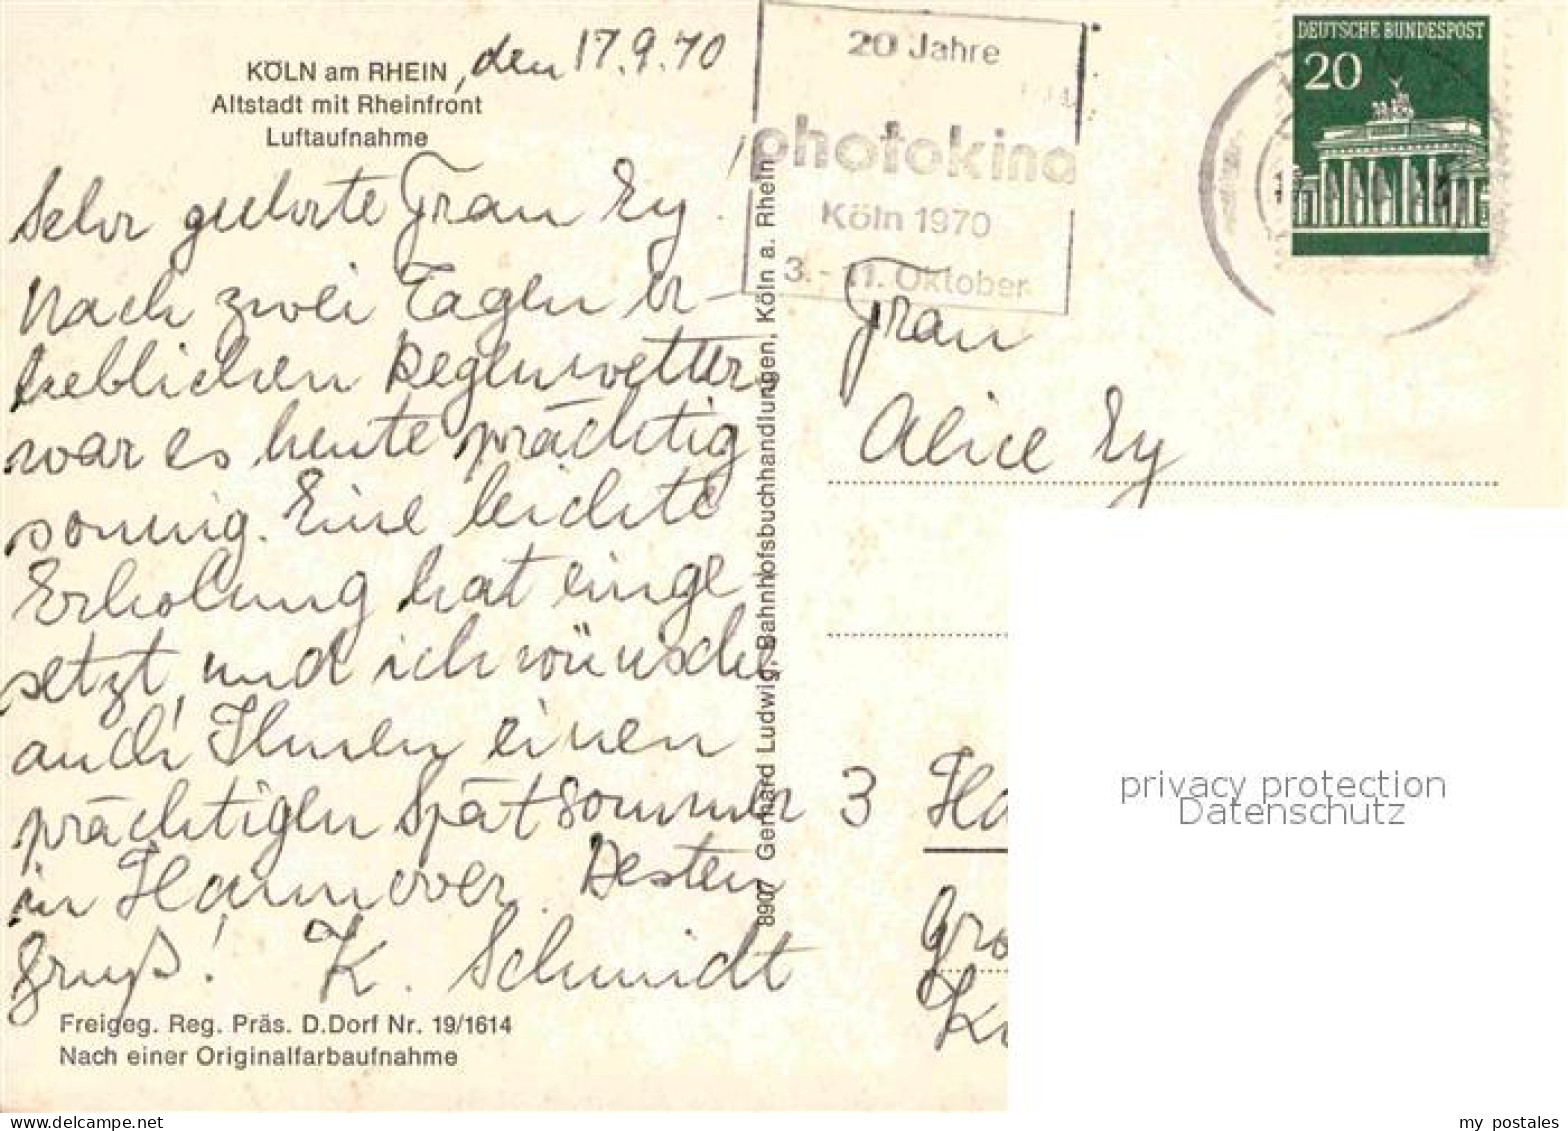 KÖLN am RHEIN, den 17.9.70
Altstadt mit Rheinfront
Luftaufnahme
Sehr geehrte Frau Ey!
Nach zwei Tagen er-
heblichen Regenwetters
war es heute prächtig
sonnig. Eine leichte
Erholung hat einge
setzt, und ich wünsche
auch Ihnen einen
prächtigen Spätsommer
in Hannover. Besten
Gruß! K. Schmidt
Freigeg. Reg. Präs. D.Dorf Nr. 19/1614
Nach einer Originalfarbaufnahme
8907 Gerhard Ludwig, Bahnhofsbuchhandlungen, Köln a. Rhein
20 Jahre
photokina
Köln 1970
3. - 11. Oktober
DEUTSCHE BUNDESPOST
20
Frau
Alice Ey
3 Ha
Gro
privacy protection
Datenschutz
my postales